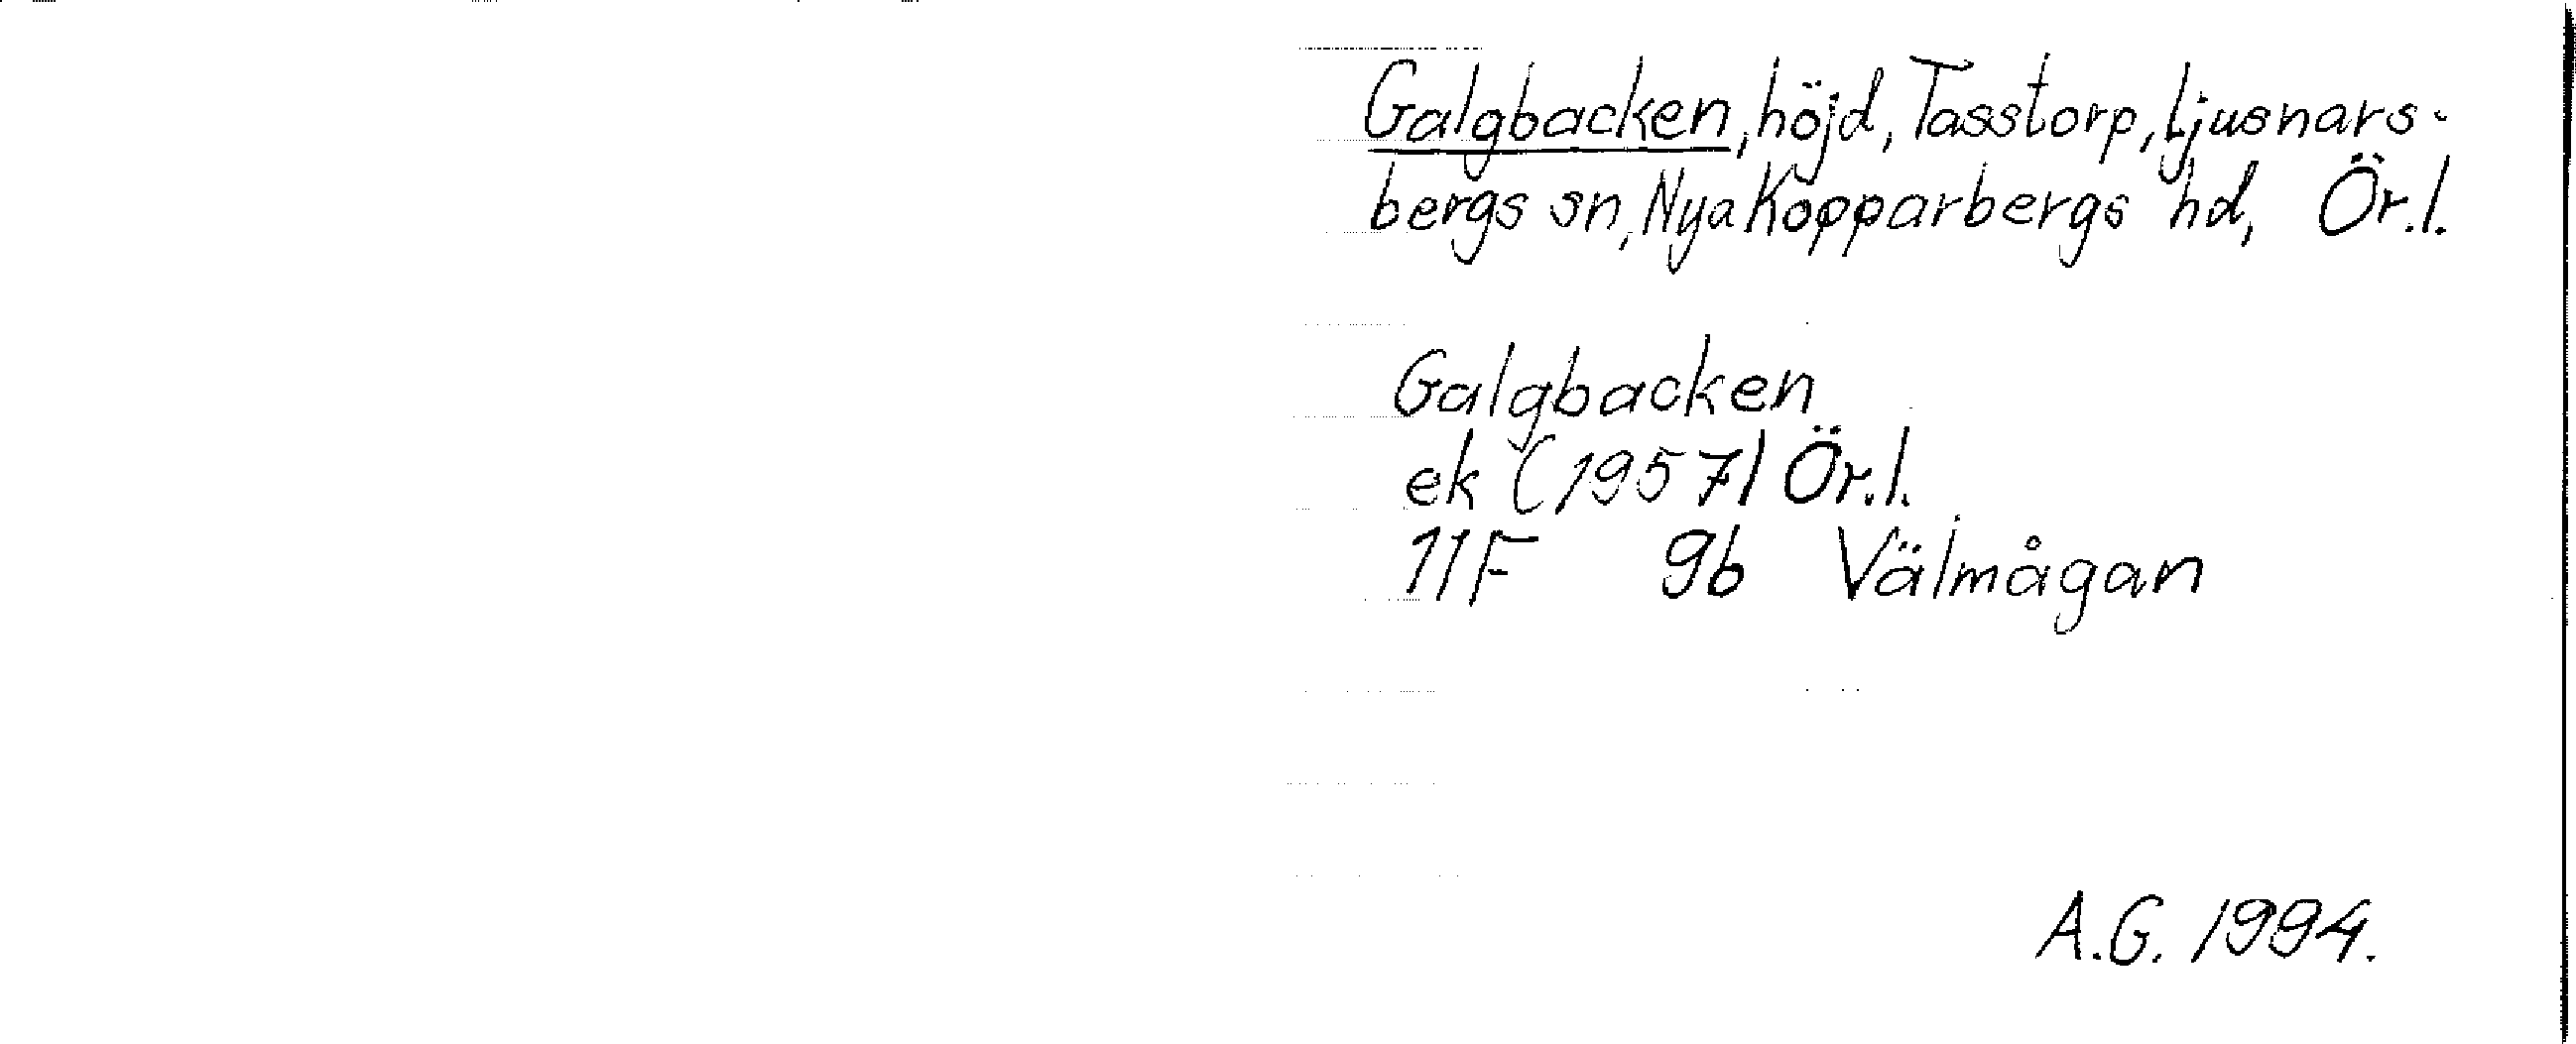 Galgbacken, höjd, Tasstorp, Ljusnars-
bergs sn, Nya Kopparbergs hd, Ör.l.
Galgbacken
ek (1957) Ör.l.
11F 9b Välmågan
A.G. 1994.